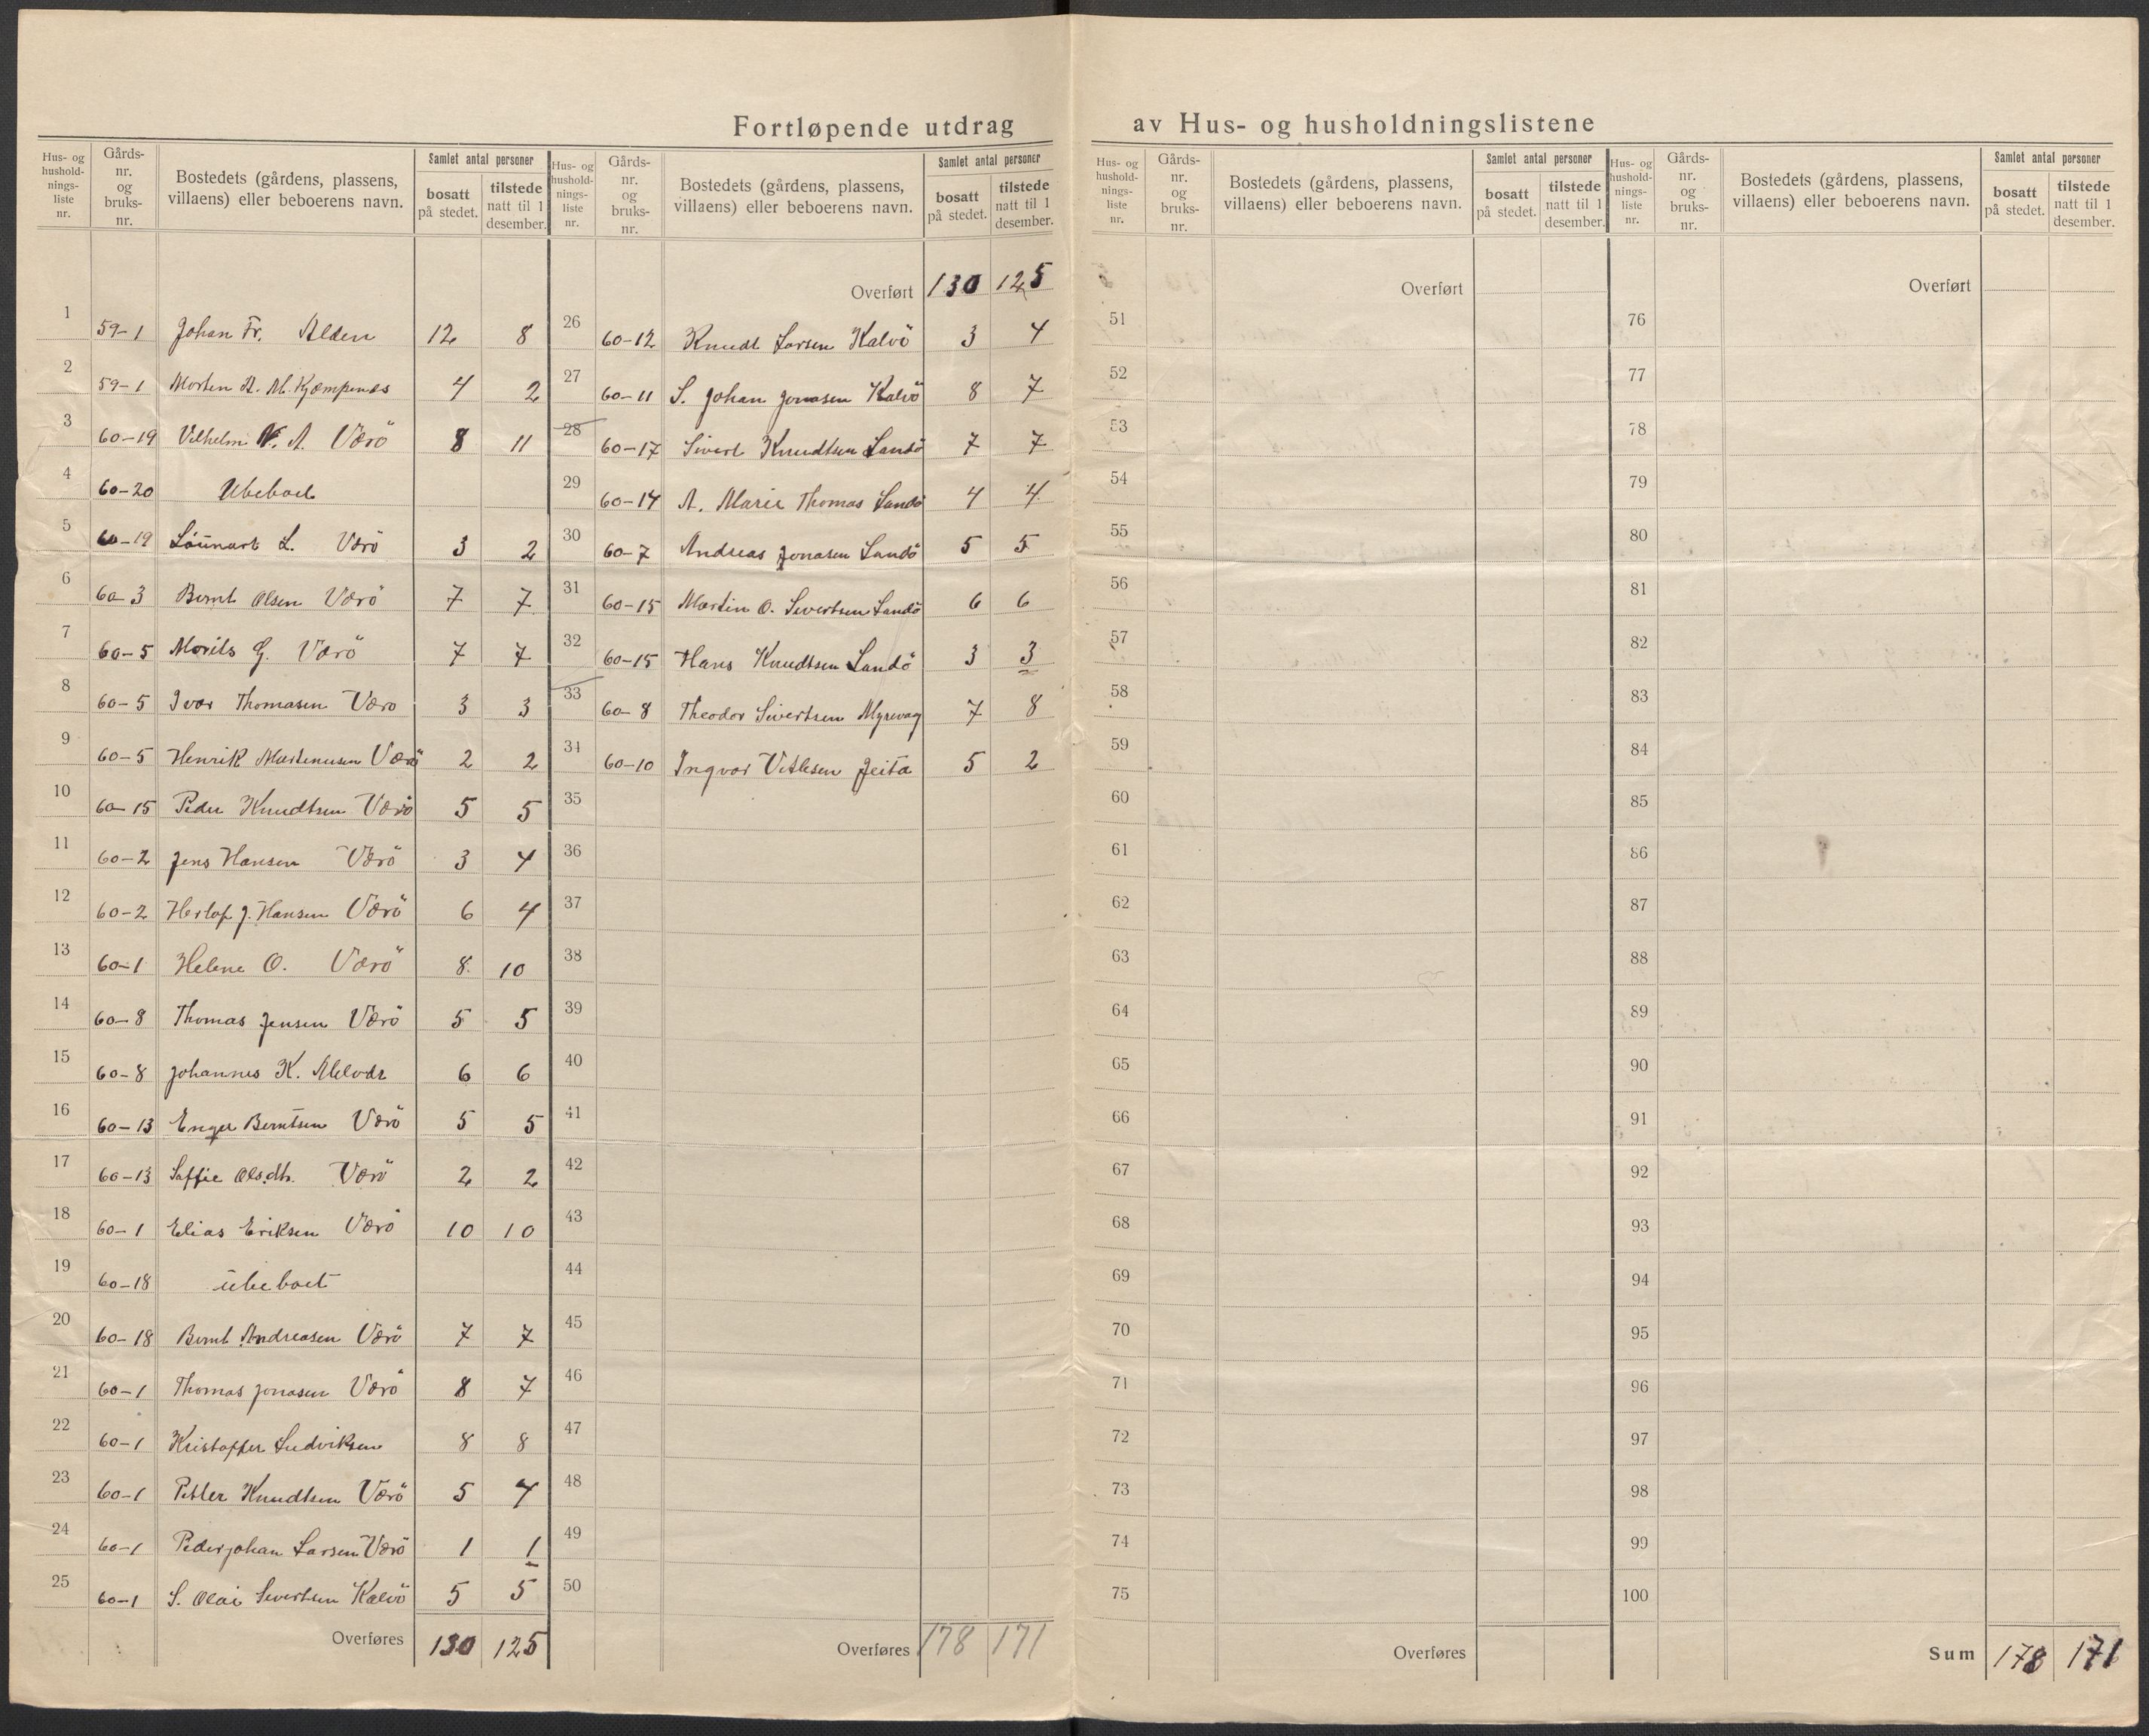 Fortløpende utdrag av Hus- og husholdningslistene
Hus- og hushold-nings-liste nr. Gårds-nr. og bruks-nr. Bostedets (gårdens, plassens, villaens) eller beboerens navn. Samlet antal personer bosatt på stedet. tilstede natt til 1 desember.
1 59-1 Johan Fr. Alden 12 8
2 59-1 Morten A. M. Kjempenes 4 2
3 60-19 Vilhelm A. Værö 8 11
4 60-20 Ubeboet
5 60-19 L. Værö 3 2
6 60-3 Bernt Olsen Værö 7 7
7 60-5 Morits G. Værö 7 7
8 60-5 Ivar Thomasen Værö 3 3
9 60-5 Henrik Martenusen Værö 2 2
10 60-15 Peder Knudtsen Værö 5 5
11 60-2 Jens Hansen Værö 3 4
12 60-2 Herlof J. Hansen Værö 6 4
13 60-1 Helene O. Værö 8 10
14 60-8 Thomas Jensen Værö 5 5
15 60-8 Johannes K. 6 6
16 60-13 Enger Berntsen Værö 5 5
17 60-13 Saffie Olsdtr. Værö 2 2
18 60-1 Elias Eriksen Værö 10 10
19 60-18 ubeboet
20 60-18 Bernt Andreasen Værö 7 7
21 60-1 Thomas Jonasen Værö 8 7
22 60-1 Kristoffer Ludviksen 8 8
23 60-1 Petter Knudtsen Værö 5 4
24 60-1 Peder Johan Larsen Værö 1 1
25 60-1 S. Olai Sivertsen Kalvö 5 5
Overføres 130 125
Hus- og hushold-nings-liste nr. Gårds-nr. og bruks-nr. Bostedets (gårdens, plassens, villaens) eller beboerens navn. Samlet antal personer bosatt på stedet. tilstede natt til 1 desember.
Overført 130 125
26 60-12 Knudt Larsen Kalvö 3 4
27 60-11 S. Johan Jonasen Kalvö 8 7
28 60-17 Sivert Knudtsen Landö 7 7
29 60-14 A. Marie Thomas Landö 4 4
30 60-7 Andreas Jonasen Landö 5 5
31 60-15 Martin O. Sivertsen Landö 6 6
32 60-15 Hans Knudtsen Landö 3 3
33 60-8 Theodor Sivertsen Myrevag 7 8
34 60-10 Ingvar Jeita 5 2
35
36
37
38
39
40
41
42
43
44
45
46
47
48
49
50
Overføres 178 171
Hus- og hushold-nings-liste nr. Gårds-nr. og bruks-nr. Bostedets (gårdens, plassens, villaens) eller beboerens navn. Samlet antal personer bosatt på stedet. tilstede natt til 1 desember.
Overført
51
52
53
54
55
56
57
58
59
60
61
62
63
64
65
66
67
68
69
70
71
72
73
74
75
Overføres
Hus- og hushold-nings-liste nr. Gårds-nr. og bruks-nr. Bostedets (gårdens, plassens, villaens) eller beboerens navn. Samlet antal personer bosatt på stedet. tilstede natt til 1 desember.
Overført
76
77
78
79
80
81
82
83
84
85
86
87
88
89
90
91
92
93
94
95
96
97
98
99
100
Sum 178 171